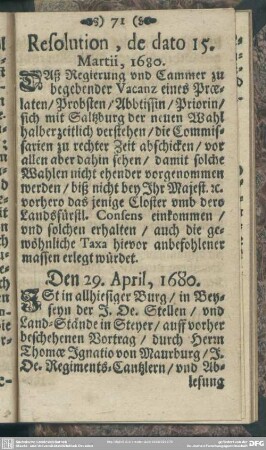 8) 71 (8
Resolution, de dato 15.
Martii, 1680.
DAß Regierung vnd Cammer zu
begebender Vacanz eines Præ-
laten/ Probsten/ Abbtissin/ Priorin/
sich mit Saltzburg der neuen Wahl
halber zeitlich verstehen/ die Commis-
sarien zu rechter Zeit abschicken/ vor
allen aber dahin sehen/ damit solche
Wahlen nicht ehender vorgenommen
werden/ biß nicht bey Ihr Majest. ꝛc.
vorhero das jenige Closter vmb dero
Landsfürstl. Consens einkommen/
vnd solchen erhalten/ auch die ge-
wöhnliche Taxa hievor anbefohlener
massen erlegt würdet.
Den 29. April, 1680.
ISt in allhiesiger Burg/ in Bey-
seyn der J. Oe. Stellen/ vnd
Land-Stände in Steyer/ auff vorher
beschehenen Vortrag/ durch Herrn
Thomæ Ignatio von Maurburg/ J.
Oe. Regiments-Cantzlern/ vnd Ab-
lesung